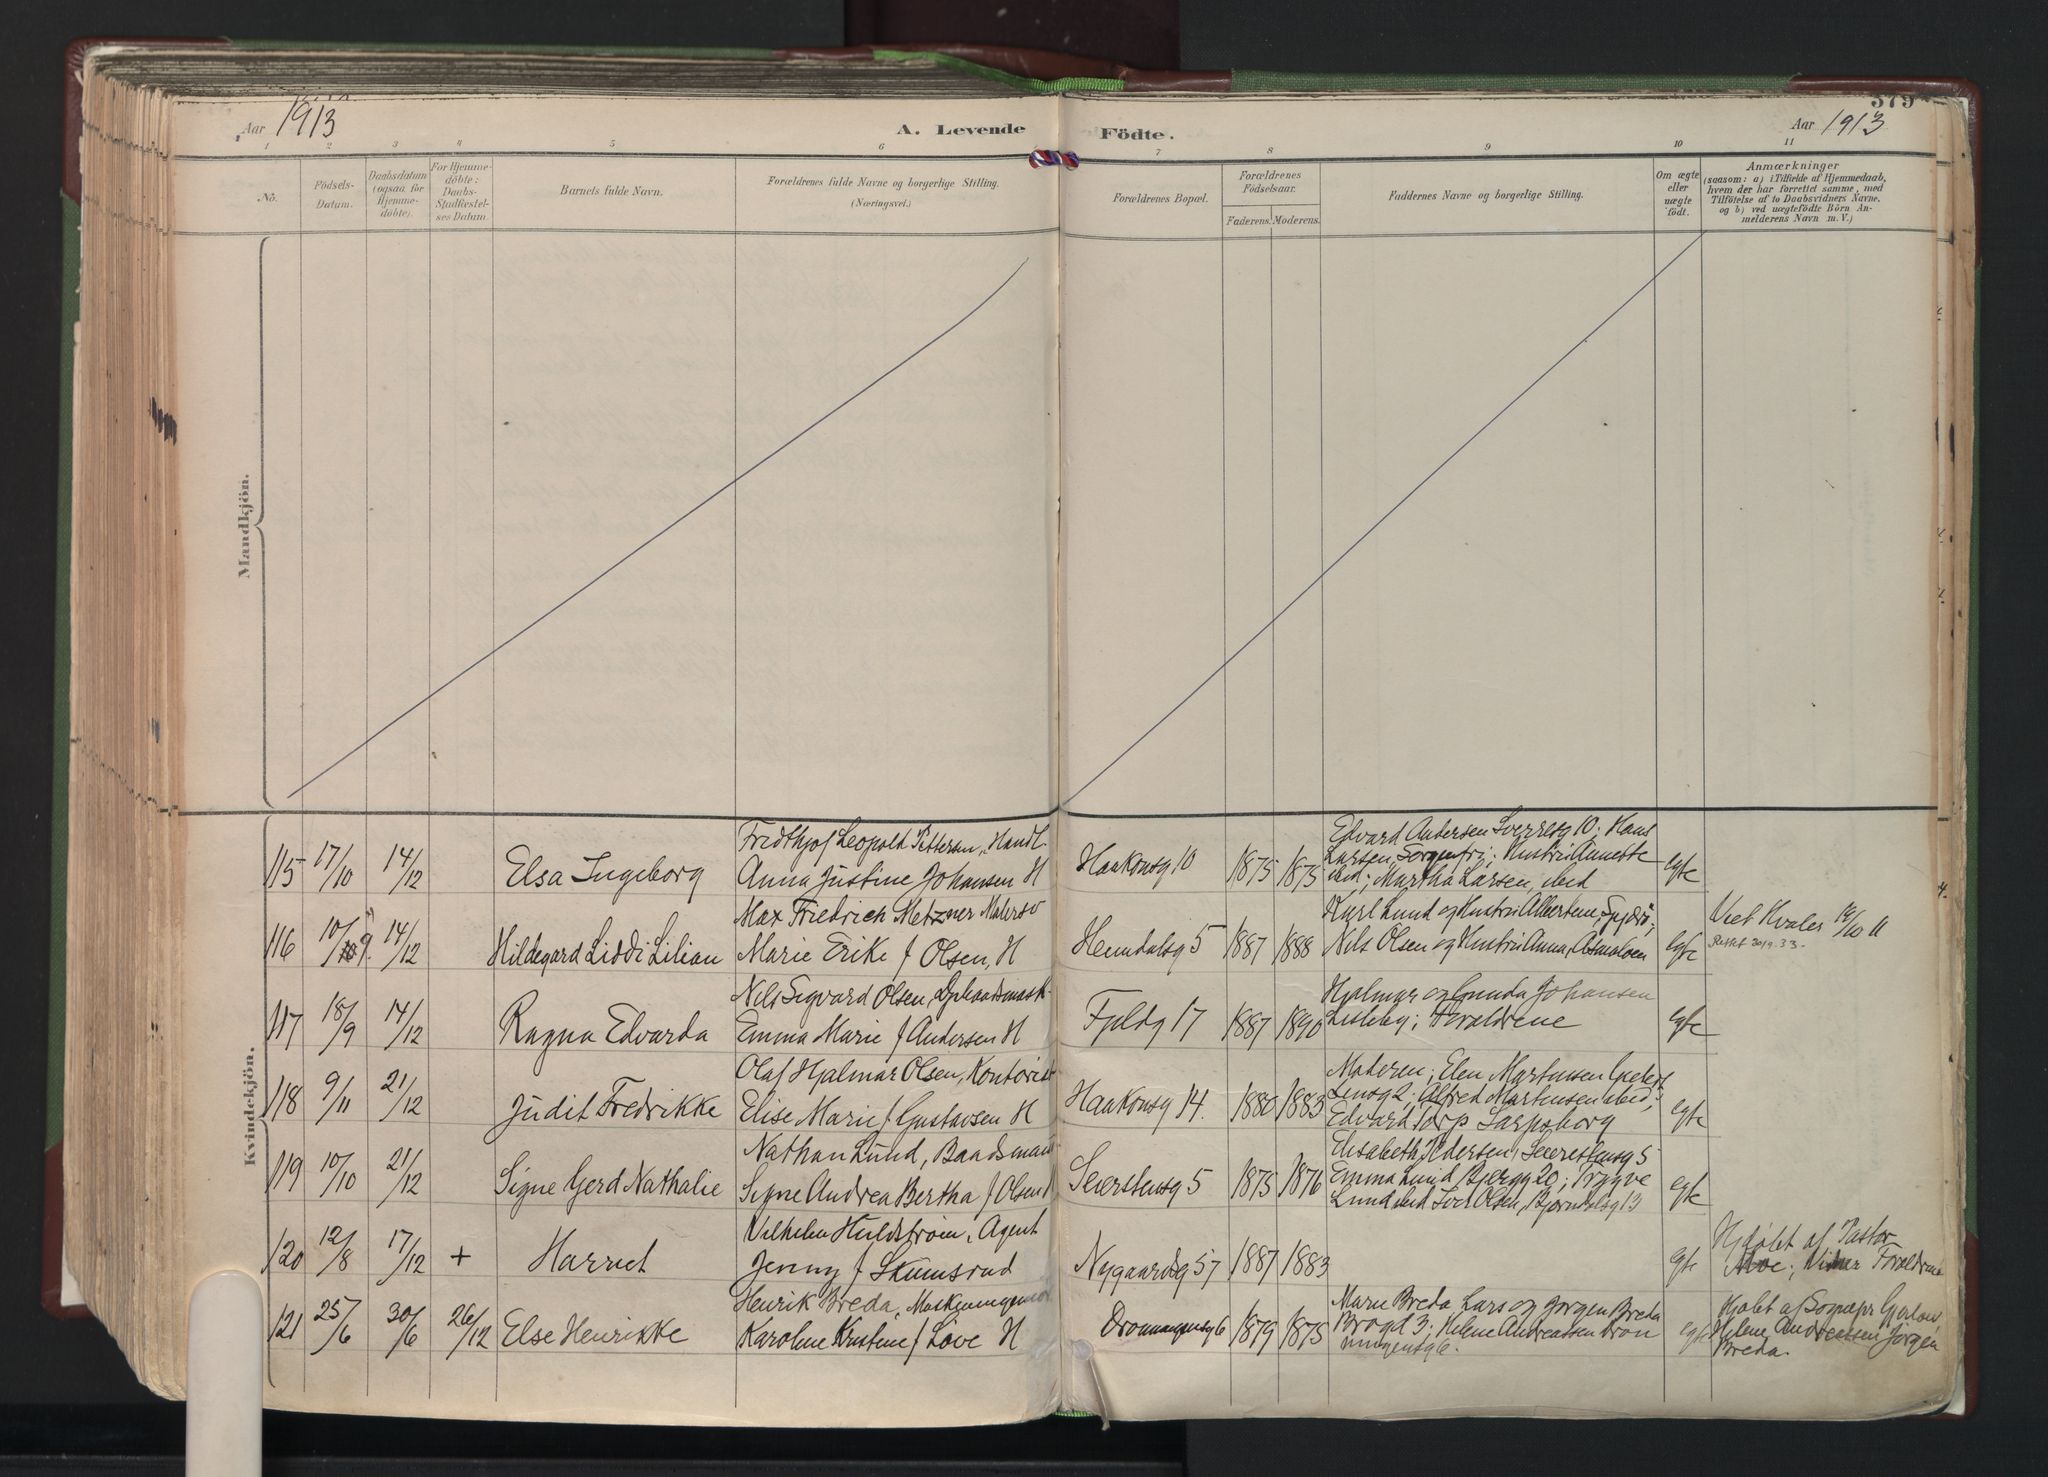 Aar 1913
A. Levende
Födte.
379
Aar 1913
1 2 3 4 5 6 7 8 9 10 11
No.
Födsels-
Datum.
Daabsdatum
(ogsaa for
Hjemme-
döbte).
For Hjemme-
döbte:
Daabs-
Stadfæstel-
ses Datum.
Barnets fulde Navn.
Forældrenes fulde Navne og borgerlige Stilling.
(Næringsvei.)
Forældrenes Bopæl.
Forældrenes
Födselsaar.
Faderens. Moderens.
Faddernes Navne og borgerlige Stilling.
Om ægte
eller
uægte
födt.
Anmærkninger
(saasom: a) i Tilfælde af Hjemmedaab,
hvem der har forrettet samme, med
Tilföielse af to Daabsvidners Navne.
og b) ved uægtefödte Börn An-
melderens Navn m. V.)
Mandkjön.
Kvindekjön.
115 17/10 14/12 Elsa Ingeborg
Fredthjof Leopold Pettersen, Handl.
Anna Justine Johansen H
Haakonsg 10 1875 1875
Edvard Andersen Sverresg 10; Hans
Larsen, Sorgenfri; Hustru Annette
ibid; Martha Larsen, ibid
egte
116 10/9 14/12 Hildegard Liddi Lilian
Max Friedrich Metzner Malersv
Marie Erike f Olsen, H
Heimdalsg 5 1887 1888
Karl Lund og Hustru Albertine,
Nils Olsen og Hustru Anna,
egte
Viet Hvaler 10 11
Rettet 20/9.33.
117 18/9 14/12 Ragna Edvarda
Nils Sigvard Olsen,
Emma Marie f Andersen H
Fjeldg 17 1887 1890
Hjalmar og Gunda Johansen
Lisleby; Foraldrene
egte
118 9/11 21/12 Judit Fredrikke
Olaf Hjalmar Olsen, Kontorist
Elise Marie f. Gustavsen H
Haakonsg 14. 1880 1883
Moderen; Elen Martinsen
2; Alfred Martinsen ibid;
Edvard Torp Sarpsborg
egte
119 10/10 21/12 Signe Gerd Nathalie
Nathan Lund, Baadsmand
Signe Andrea Bertha f Olsen H
Seierstensg 5 1875 1876
Elisabeth Pedersen, Seierstensg 5
Emma Lund Bjergg 20; Trygve
Lund ibid Olsen, Bjørndalsg 13
egte
120 12/8 17/12 + Harriet
Vilhelm Huldstrøm, Agent
Jenny f Skumsrud
Nygaardsg 57 1887 1883
egte
Hjdøbt af Pastor
Foraldrene
121 25/6 30/6 26/12 Else Henrikke
Henrik Breda,
Karoline Kristine f Love H
Dronningensg 6 1879 1875
Marie Breda Lars og Jørgen Breda
Brogd 3; Helene Andreassen Dron
ningensg 6.
egt
Hjdøbt af Sognepr
Helene Andreassen Jørgen
Breda.